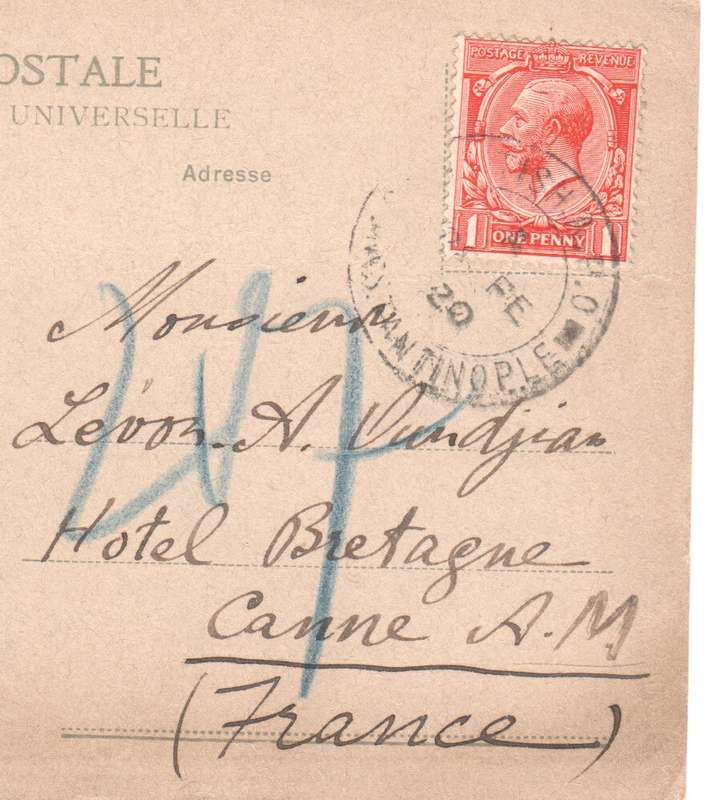 OSTALE
UNIVERSELLE
Adresse
POSTAGE REVENUE
1 ONE PENNY 1
FE
20
Monsieur
Lévon A.
Hotel Bretagne
Canne A.M
(France)